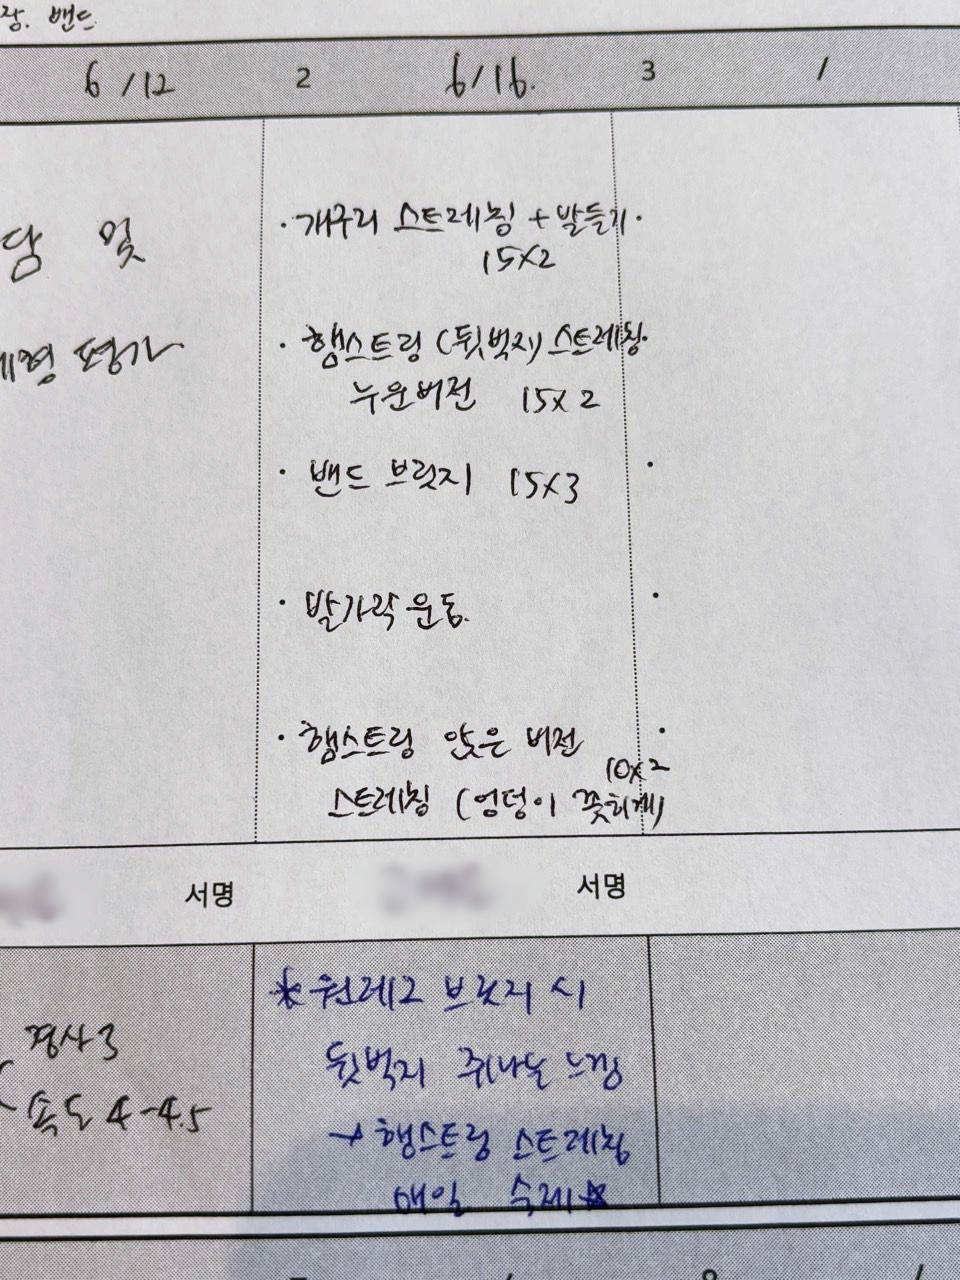 밴드
6/12 2 6/16. 3 /
담 및
체형 평가
· 개구리 스트레칭 + 발들기.
15x2
· 햄스트링 (뒷벅지) 스트레칭
누운버전 15x2
· 밴드 브릿지 15x3
· 발가락 운동.
· 햄스트링 앉은 버전
10x2
스트레칭 (엉덩이 꽂히게)
서명 서명
경사 3
속도 4-4.5
* 원레그 브릿지 시
뒷벅지 쥐나는 느낌
→ 햄스트링 스트레칭
매일 숙제☆